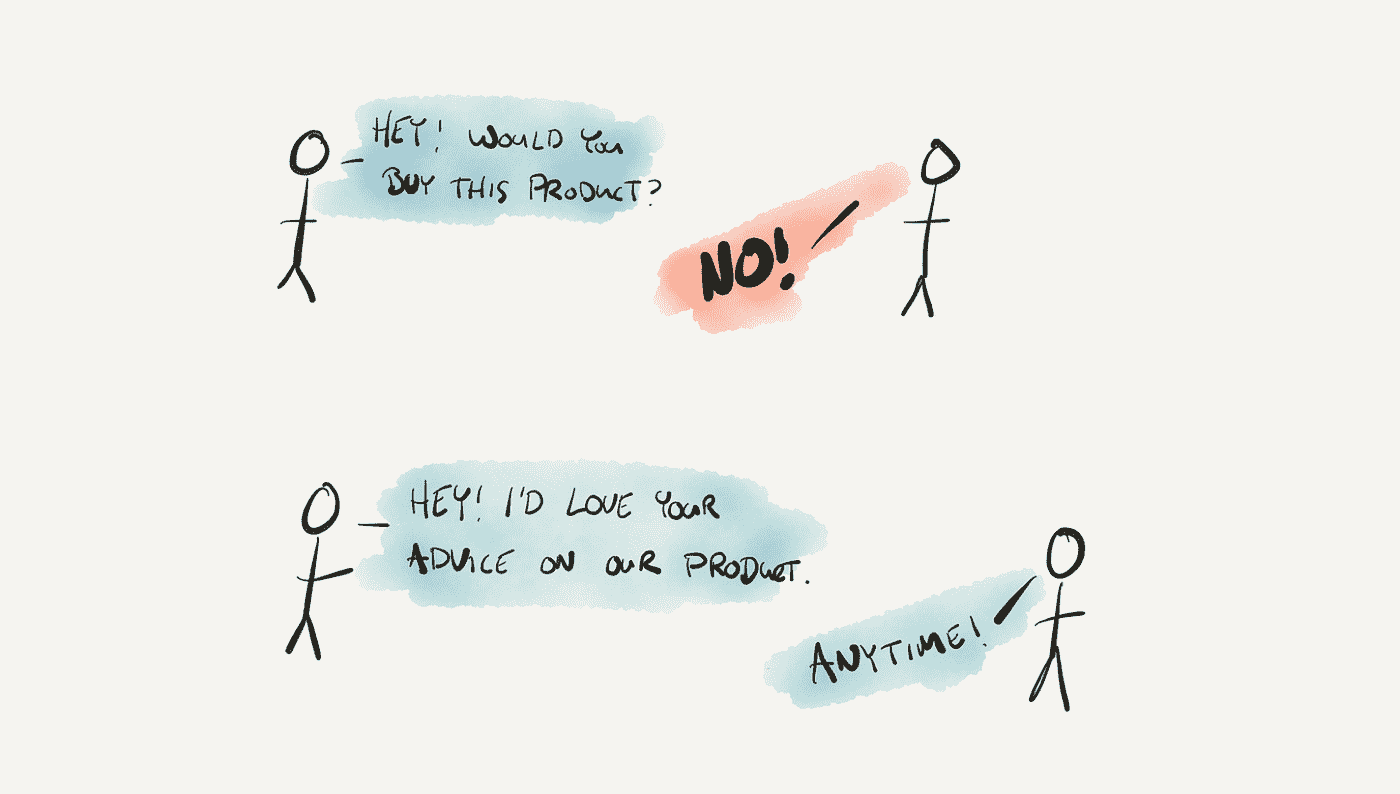 HEY! WOULD YOU
BUY THIS PRODUCT?
NO!
HEY! I'D LOVE YOUR
ADVICE ON OUR PRODUCT.
ANYTIME!